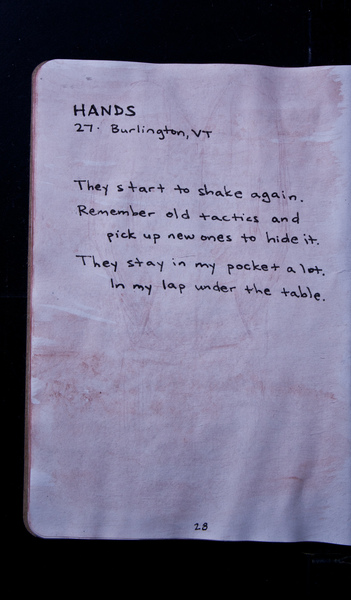 HANDS
27. Burlington, VT
They start to shake again.
Remember old tactics and
pick up new ones to hide it.
They stay in my pocket a lot.
In my lap under the table.
28